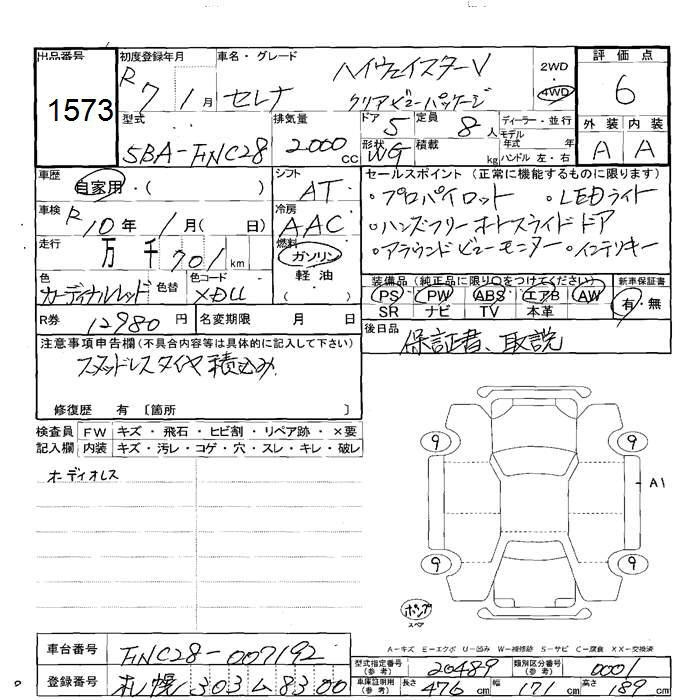 出品番号
1573
初度登録年月
R7 / 1月
車名・グレード
セレナ ハイウェイスターV
クリアビューパッケージ
2WD
4WD
評価点
6
外装 内装
A A
型式
5BA-FNC28
排気量
2000 cc
ドア 5
定員 8 人
形状 WG
積載 kg
ディーラー・並行
モデル
年式 年
ハンドル 左・右
車歴
自家用・( )
シフト
AT
セールスポイント (正常に機能するものに限ります)
・プロパイロット ・LEDライト
・ハンズフリーオートスライドドア
・アラウンドビューモニター ・インテリキー
車検
R10年 1月( 日)
冷房
AAC
走行
万 千 701 km
燃料
ガソリン
軽油
色
カーディナルレッド
色替
色コード
XDU
装備品 (純正品に限り○をつけてください)
PS PW ABS エアB AW
SR ナビ TV 本革
新車保証書
有・無
R券 12980 円
名変期限 月 日
後日品
保証書、取説
注意事項申告欄 (不具合内容等は具体的に記入して下さい)
スタッドレスタイヤ積込み
修復歴 有 〔箇所 〕
検査員 FW キズ・飛石・ヒビ割・リペア跡・×要
記入欄 内装 キズ・汚レ・コゲ・穴・スレ・キレ・破レ
オーディオレス
9 9
A1
9 9
ポンプ
スペア
A-キズ E-エクボ U-凹み W-補修跡 S-サビ C-腐食 XX-交換済
車台番号 FNC28-007192
登録番号 札幌 303 ム 8300
型式指定番号
(参考) 20489
類別区分番号
(参考) 0001
車庫証明用
(参考) 長さ 476 cm 幅 171 cm 高さ 189 cm